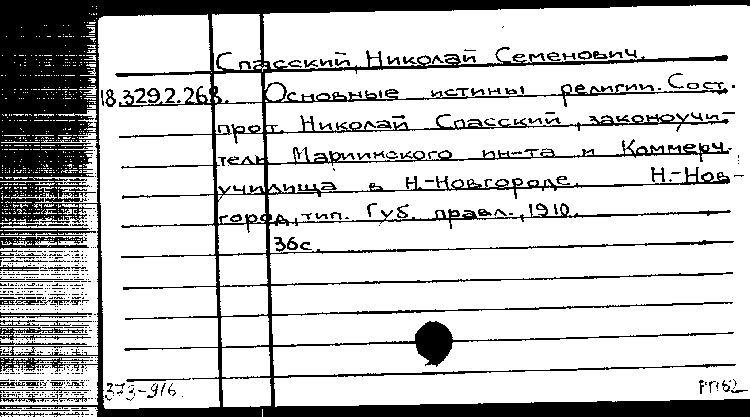 Спасский, Николай Семенович.
18.329.2.268. Основные истины религии. Сост.
прот. Николай Спасский, законоучи-
тель Мариинского ин-та и Коммерч.
училища в Н.-Новгороде. Н.-Нов-
город, тип. Губ. правл., 1910.
36с.
373-916